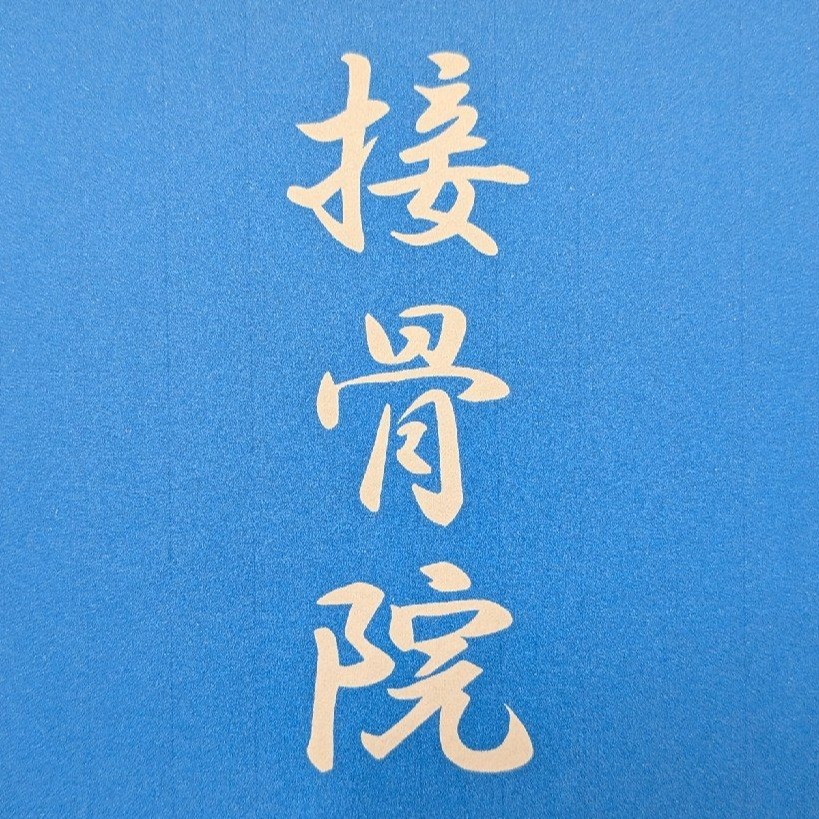 接骨院